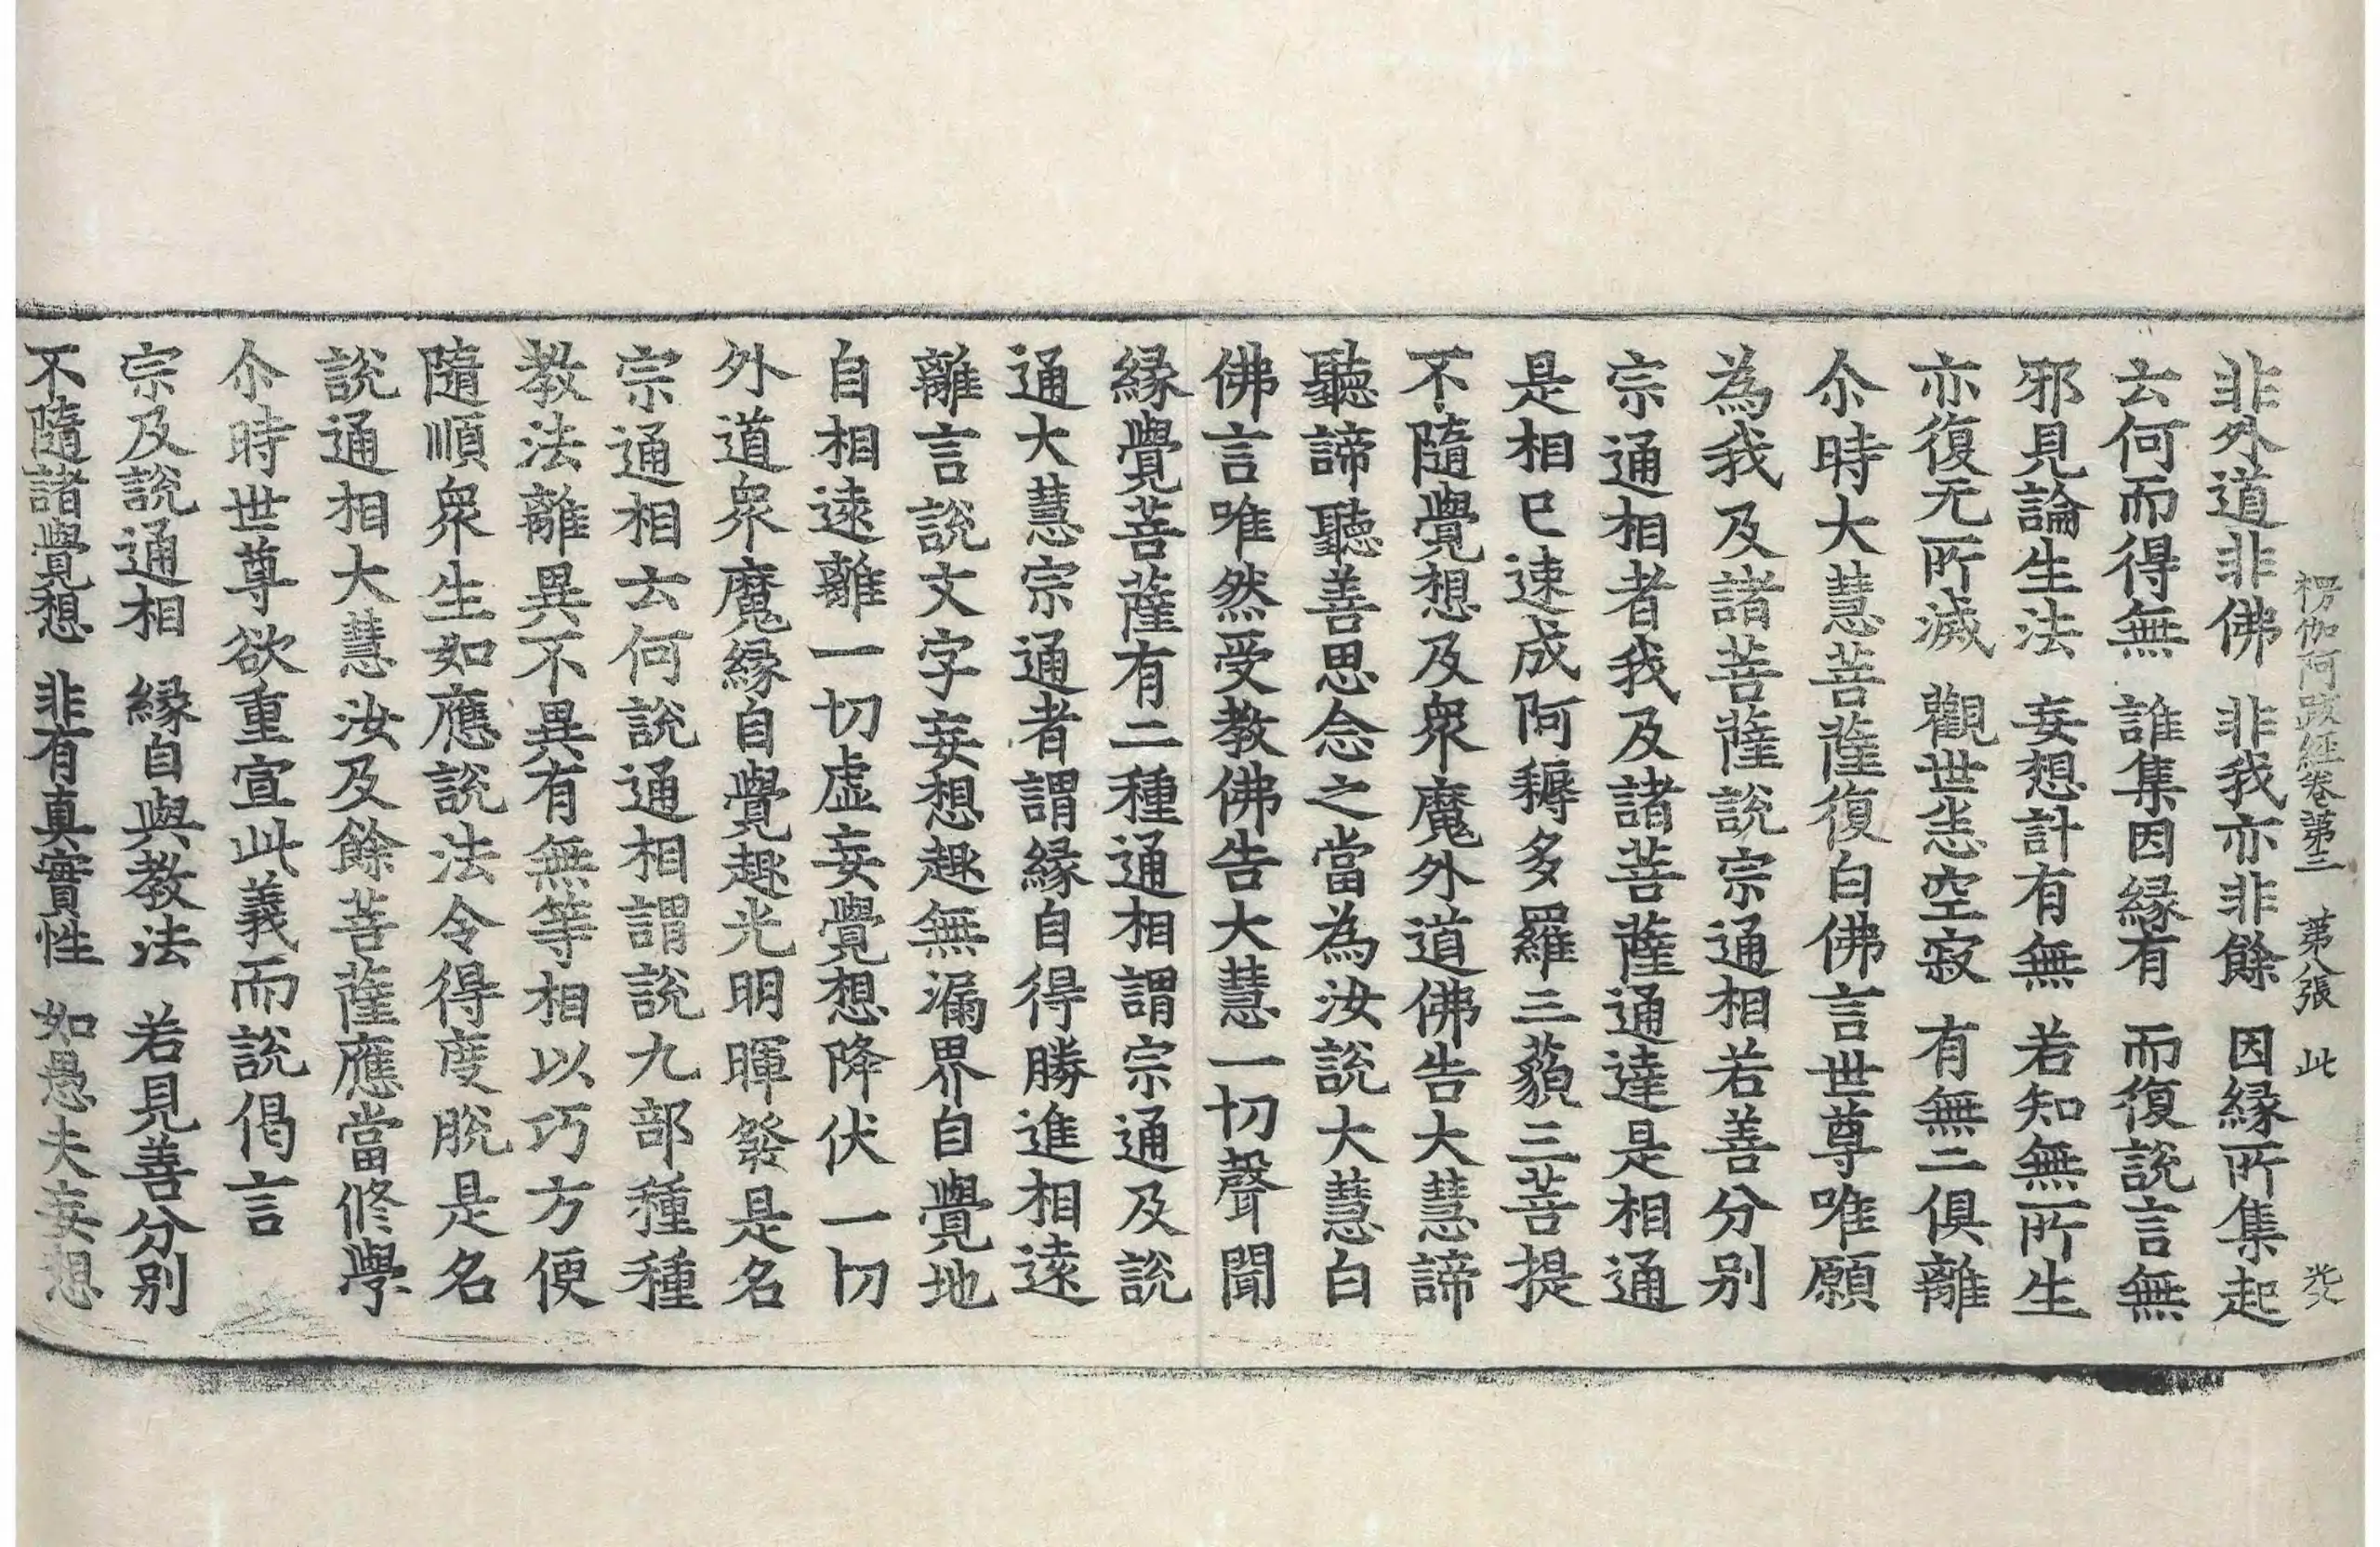 楞伽阿跋經卷第三　第八張　此
非外道非佛　非我亦非餘　因緣所集起
云何而得無　誰集因緣有　而復說言無
邪見論生法　妄想計有無　若知無所生
亦復无所滅　觀世悉空寂　有無二俱離
尒時大慧菩薩復白佛言世尊唯願
為我及諸菩薩說宗通相若善分别
宗通相者我及諸菩薩通達是相通
是相已速成阿耨多羅三藐三菩提
不隨覺想及衆魔外道佛告大慧諦
聽諦聽善思念之當為汝說大慧白
佛言唯然受教佛告大慧一切聲聞
緣覺菩薩有二種通相謂宗通及說
通大慧宗通者謂緣自得勝進相遠
離言說文字妄想趣無漏界自覺地
自相遠離一切虛妄覺想降伏一切
外道衆魔緣自覺趣光明暉發是名
宗通相云何說通相謂說九部種種
教法離異不異有無等相以巧方便
隨順衆生如應說法令得度脫是名
說通相大慧汝及餘菩薩應當修學
尒時世尊欲重宣此義而說偈言
宗及說通相　緣自與教法　若見善分别
不隨諸覺想　非有真實性　如愚夫妄想